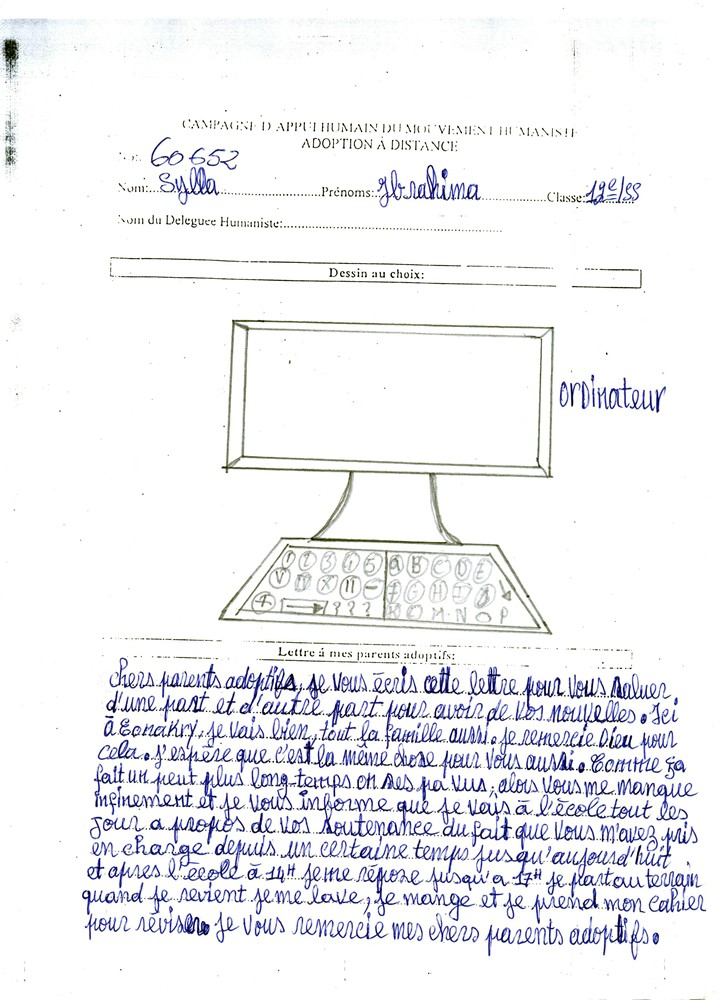 CAMPAGNE D'APPUI HUMAIN DU MOUVEMENT HUMANISTE
ADOPTION À DISTANCE
60652
Nom:...Sylla...Prénoms:Ibrahima...Classe:12e/SS
Nom du Deleguee Humaniste:
Dessin au choix:
ordinateur
1 2 3 4 5 A B C D E
V X 11 - F G H I J
+ ? ? ? K M N O P
Lettre á mes parents adoptifs:
chers parents adoptifs, je vous écris cette lettre pour vous saluer
d'une part et d'autre part pour avoir de vos nouvelles. Ici
à Conakry, je vais bien, tout la famille aussi. je remercie Dieu pour
cela. J'espère que c'est la même chose pour vous aussi. Comme ça
fait un peut plus long-temps on ses pa vus, alors vous me manque
infinement et je vous informe que je vais à l'école tout les
jour a propos de vos soutenance du fait que vous m'avez pris
en charge depuis un certaine temps jusqu'aujourd'huit
et après l'école à 14H je me répose jusqu'a 17H je part au terrain
quand je revient je me lave, je mange et je prend mon cahier
pour réviser. je vous remercie mes chers parents adoptifs.